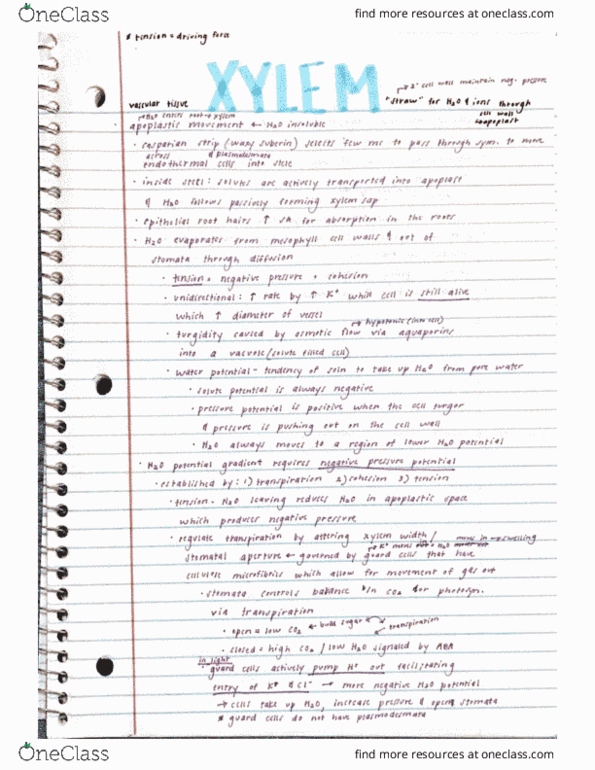 OneClass
find more resources at oneclass.com
* tension = driving force
XYLEM
2° cell wall maintain neg. pressure
vascular tissue
"straw" for H2O & ions through
cell wall
apoplast
H2O enters root → xylem
· apoplastic movement ← H2O insoluble
· casparian strip (waxy suberin) selects few ms to pass through sym. to move
across & plasmodesmata
endothermal cells into stele
· inside steel: solutes are actively transported into apoplast
& H2O follows passively forming xylem sap
· epithelial root hairs ↑ SA for absorption in the roots
· H2O evaporates from mesophyll cell walls & out of
stomata through diffusion
· tension = negative pressure + cohesion
· unidirectional: ↑ rate by ↑ K+ while cell is still alive
which ↑ diameter of vessel
→ hypotonic (into cell)
· turgidity caused by osmotic flow via aquaporins
into a vacuole (solute filled cell)
· water potential - tendency of soln to take up H2O from pure water
· solute potential is always negative
· pressure potential is positive when the cell turgor
& pressure is pushing out on the cell wall
· H2O always moves to a region of lower H2O potential
· H2O potential gradient requires negative pressure potential
· established by: 1) transpiration 2) cohesion 3) tension
· tension - H2O leaving reduces H2O in apoplastic space
which produces negative pressure
· regulate transpiration by altering xylem width / move in → swelling
→ K+ moves out → H2O moves out
stomatal aperture ← governed by guard cells that have
cellulose microfibrils which allow for movement of gas out
· stomata controls balance b/n CO2 for photosyn.
via transpiration
· open = low CO2 ← build sugar
transpiration
· closed = high CO2 / low H2O signaled by ABA
in light
guard cells actively pump H+ out facilitating
entry of K+ & Cl- → more negative H2O potential
→ cells take up H2O, increase pressure & open stomata
* guard cells do not have plasmodesmata
OneClass
find more resources at oneclass.com